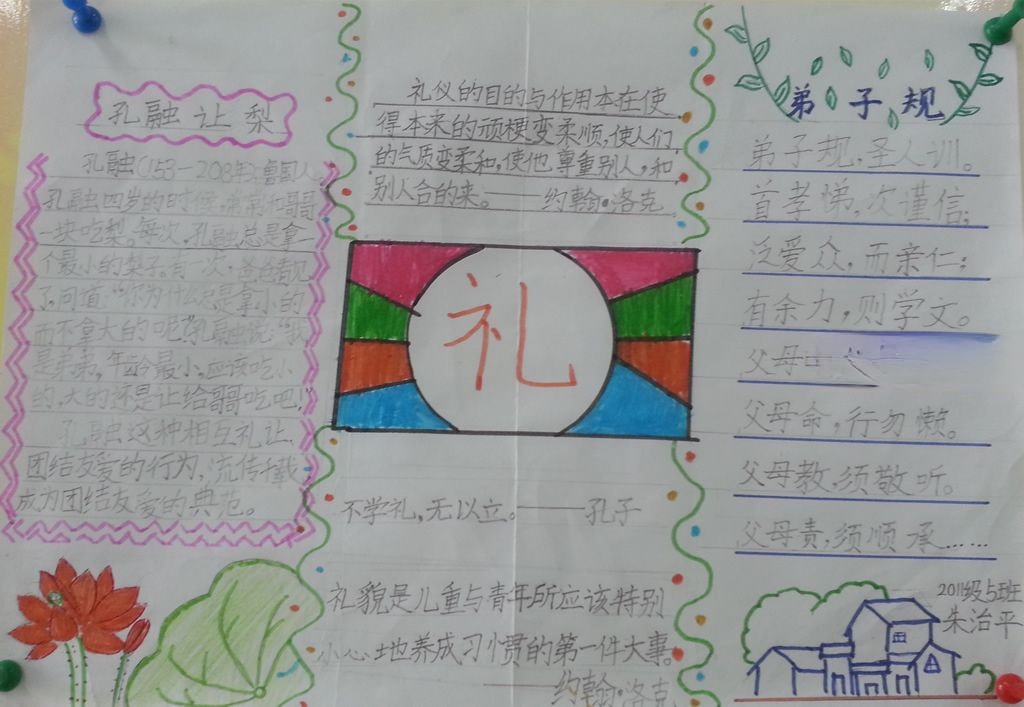 孔融让梨
孔融(153—208年):鲁国人。
孔融四岁的时候,常常和哥哥
一块吃梨。每次,孔融总是拿一
个最小的梨子。有一次,爸爸看见
了,问道:“你为什么总是拿小的
而不拿大的呢?”孔融说:“我
是弟弟,年龄最小,应该吃小
的,大的还是让给哥哥吃吧!”
孔融这种相互礼让、
团结友爱的行为,流传千载,
成为团结友爱的典范。
礼仪的目的与作用本在使
得本来的顽梗变柔顺,使人们
的气质变柔和,使他尊重别人,和
别人合的来。——约翰·洛克
礼
不学礼,无以立。——孔子
礼貌是儿童与青年所应该特别
小心地养成习惯的第一件大事。
——约翰·洛克
弟子规
弟子规,圣人训。
首孝悌,次谨信;
泛爱众,而亲仁;
有余力,则学文。
父母
父母命,行勿懒。
父母教,须敬听。
父母责,须顺承……
2011级5班
朱治平